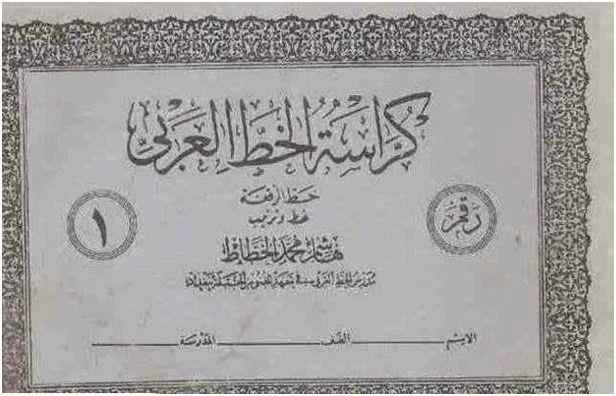 كراسة الخط العربي
رقم
١
خط الرقعة
خط وترتيب
هاشم محمد الخطاط
مدرس الخط العربي في معهد الفنون الجميلة ببغداد
الاسم الصف المدرسة